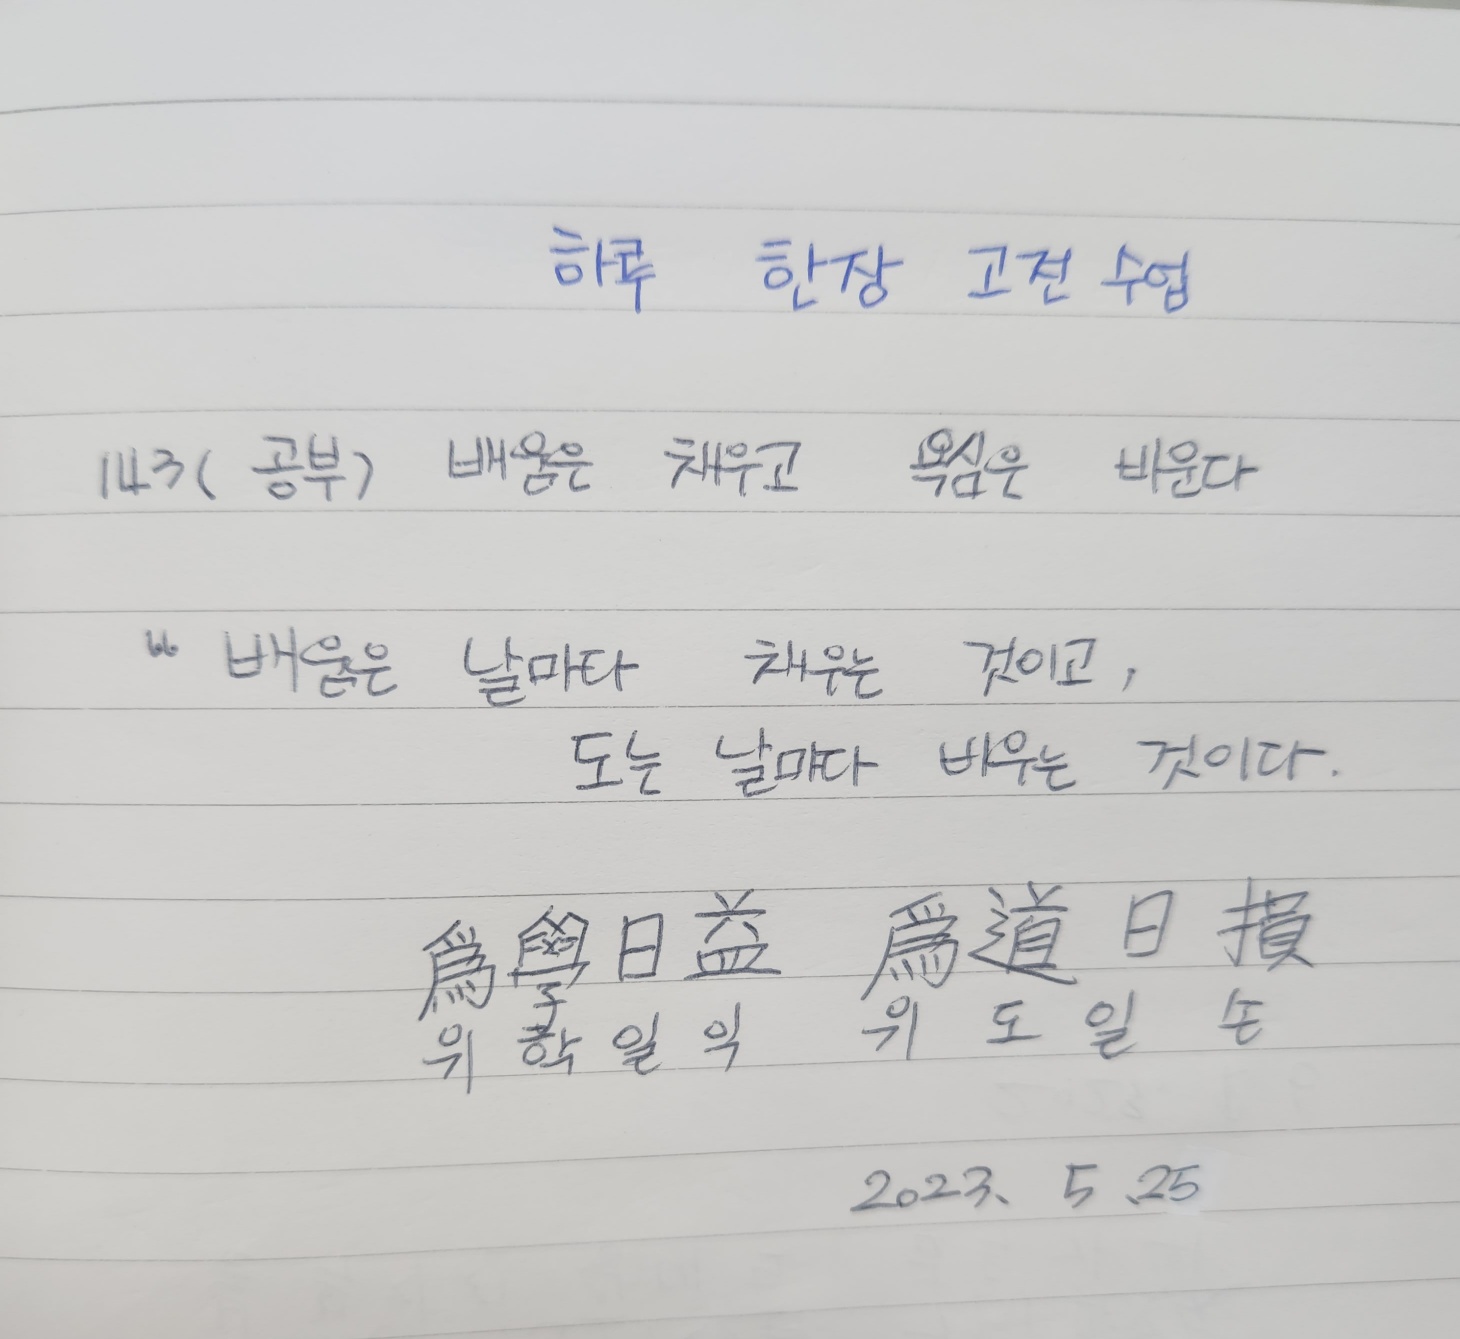 하루 한장 고전 수업
143( 공부) 배움은 채우고 욕심은 비운다
“ 배움은 날마다 채우는 것이고,
도는 날마다 비우는 것이다.
爲學日益 爲道日損
위학일익 위도일손
2023. 5.25